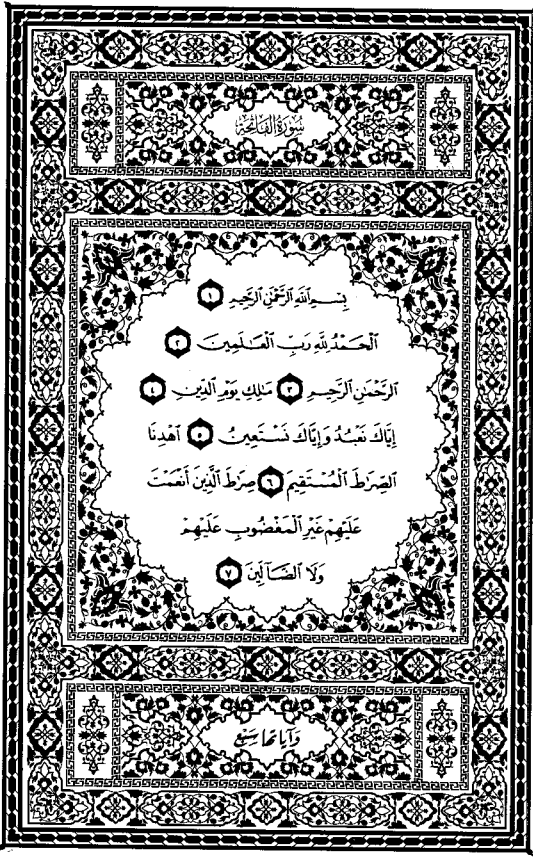 سُورَةُ الْفَاتِحَة
بِسْمِ ٱللَّهِ ٱلرَّحْمَٰنِ ٱلرَّحِيمِ ١
ٱلْحَمْدُ لِلَّهِ رَبِّ ٱلْعَٰلَمِينَ ٢
ٱلرَّحْمَٰنِ ٱلرَّحِيمِ ٣ مَٰلِكِ يَوْمِ ٱلدِّينِ ٤
إِيَّاكَ نَعْبُدُ وَإِيَّاكَ نَسْتَعِينُ ٥ ٱهْدِنَا
ٱلصِّرَٰطَ ٱلْمُسْتَقِيمَ ٦ صِرَٰطَ ٱلَّذِينَ أَنْعَمْتَ
عَلَيْهِمْ غَيْرِ ٱلْمَغْضُوبِ عَلَيْهِمْ
وَلَا ٱلضَّآلِّينَ ٧
وَآيَاتُهَا سَبْعٌ